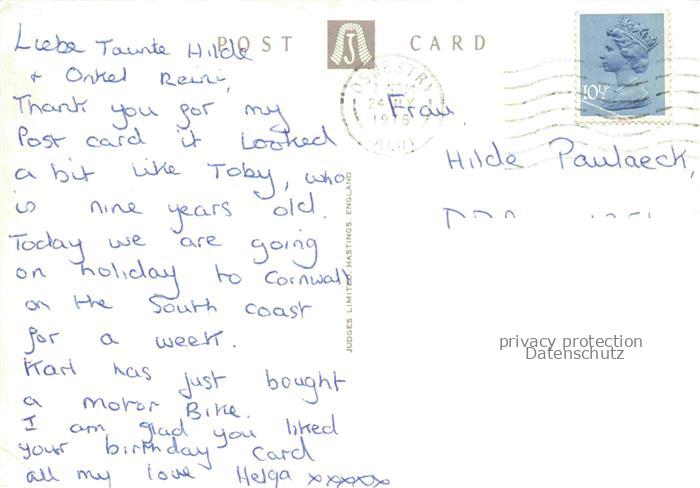 POST CARD
Liebe Taunte Hilde
+ Onkel Reini,
Thank you for my
Post card it Looked
a bit like Toby, who
is nine years old.
Today we are going
on holiday to Cornwall
on the South coast
for a week.
Karl has just bought
a motor Bike.
I am glad you liked
your birthday card
all my love Helga xxxxx
JUDGES LIMITED, HASTINGS, ENGLAND
OSWESTRY
24
197
SALOP
10½P
Frau,
Hilde Paulaeck,
privacy protection
Datenschutz